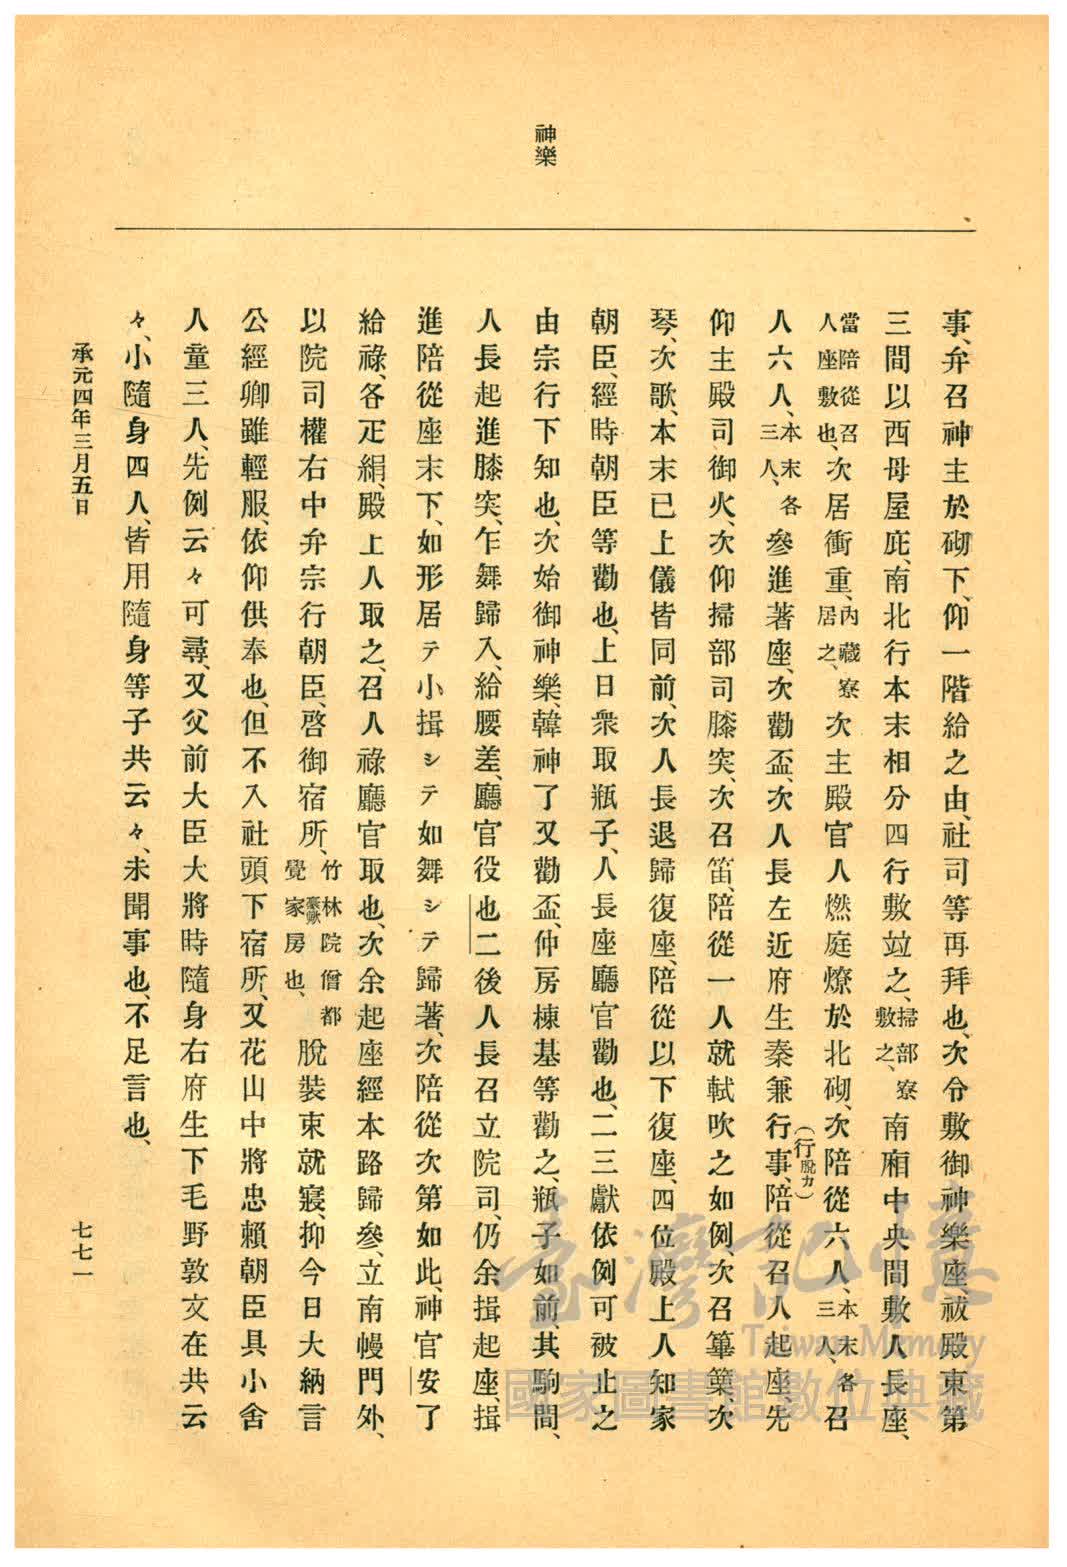 神樂
事、弁召神主於砌下、仰一階給之由、社司等再拜也、次令敷御神樂座、祓殿東第
三間以西母屋庇、南北行本末相分四行敷竝之、掃部寮敷之、南廂中央間敷人長座、
當陪從召人座敷也、次居衝重、內藏寮居之、次主殿官人燃庭燎於北砌、次陪從六人、本末各三人、召
人六人、本末各三人、參進著座、次勸盃、次人長左近府生秦兼行事、(行脫カ)陪從召人起座、先
仰主殿司御火、次仰掃部司膝突、次召笛、陪從一人就軾吹之如例、次召篳篥、次
琴、次歌、本末已上儀皆同前、次人長退歸復座、陪從以下復座、四位殿上人知家
朝臣、經時朝臣等勸也、上日衆取瓶子、人長座廳官勸也、二三獻依例可被止之
由宗行下知也、次始御神樂、韓神了又勸盃、仲房棟基等勸之、瓶子如前、其駒間、
人長起進膝突、乍舞歸入、給腰差、廳官役也二後人長召立院司、仍余揖起座、揖
進陪從座末下、如形居テ小揖シテ如舞シテ歸著、次陪從次第如此、神官安了
給祿、各疋絹、殿上人取之、召人祿廳官取也、次余起座經本路歸參、立南幔門外、
以院司權右中弁宗行朝臣、啓御宿所、竹林院僧都覺家豪歟房也、脫裝束就寢、抑今日大納言
公經卿雖輕服、依仰供奉也、但不入社頭、下宿所、又花山中將忠賴朝臣具小舍
人童三人、先例云々可尋、又父前大臣大將時隨身右府生下毛野敦文在共云
々、小隨身四人、皆用隨身等子共云々、未聞事也、不足言也、
承元四年三月五日
七七一
臺灣記憶
Taiwan Memory
國家圖書館數位典藏